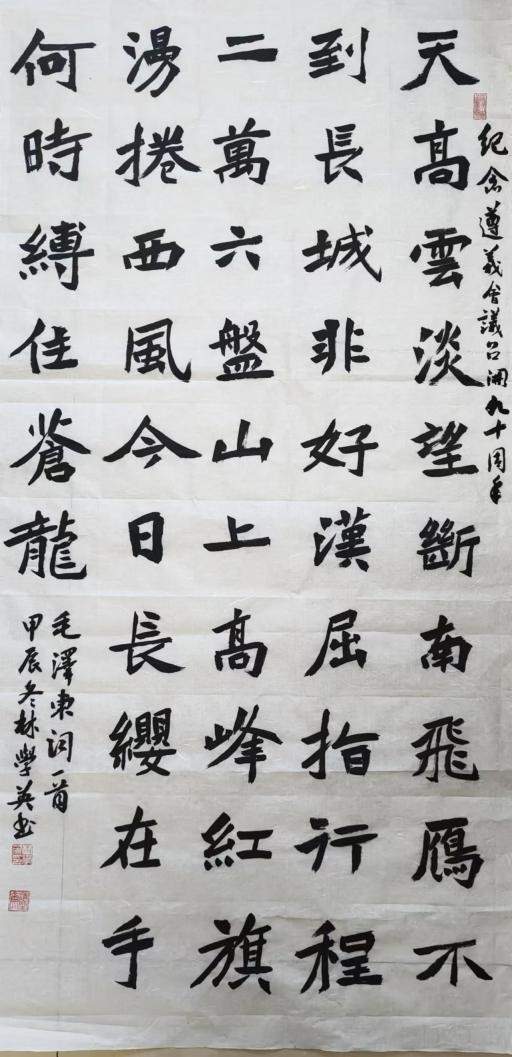 紀念遵義會議召開九十周年
天高雲淡望斷南飛鴈不
到長城非好漢屈指行程
二萬六盤山上高峰紅旗
漫捲西風今日長纓在手
何時縛住蒼龍
毛澤東詞一首
甲辰冬林學英书